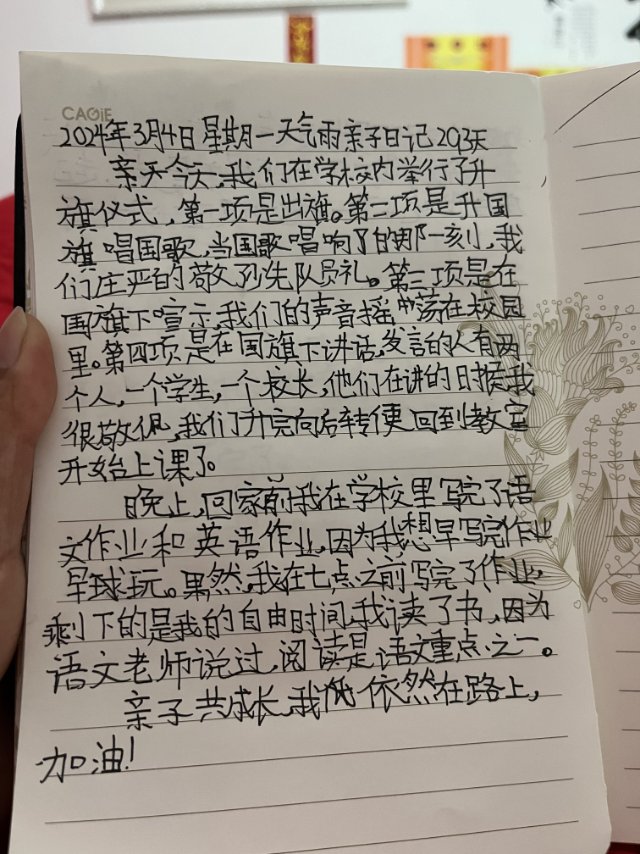 CAGIE
2024年3月4日星期一天气雨亲子日记293天
亲天今天,我们在学校内举行了升
旗仪式,第一项是出旗。第二项是升国
旗唱国歌,当国歌唱响了的那一刻,我
们庄严的敬少先队员礼。第三项是在
国旗下宣示,我们的声音摇荡在校园
里。第四项是在国旗下讲话,发言的人有两
个人,一个学生,一个校长,他们在讲的时候我
很敬佩,我们升完向后转便回到教室
开始上课了。
晚上,回家前我在学校里写完了语
文作业和英语作业,因为我想早写完作业
早球玩。果然,我在七点之前写完了作业,
剩下的是我的自由时间,我读了书,因为
语文老师说过,阅读是语文重点之一。
亲子共成长,我们依然在路上,
加油!